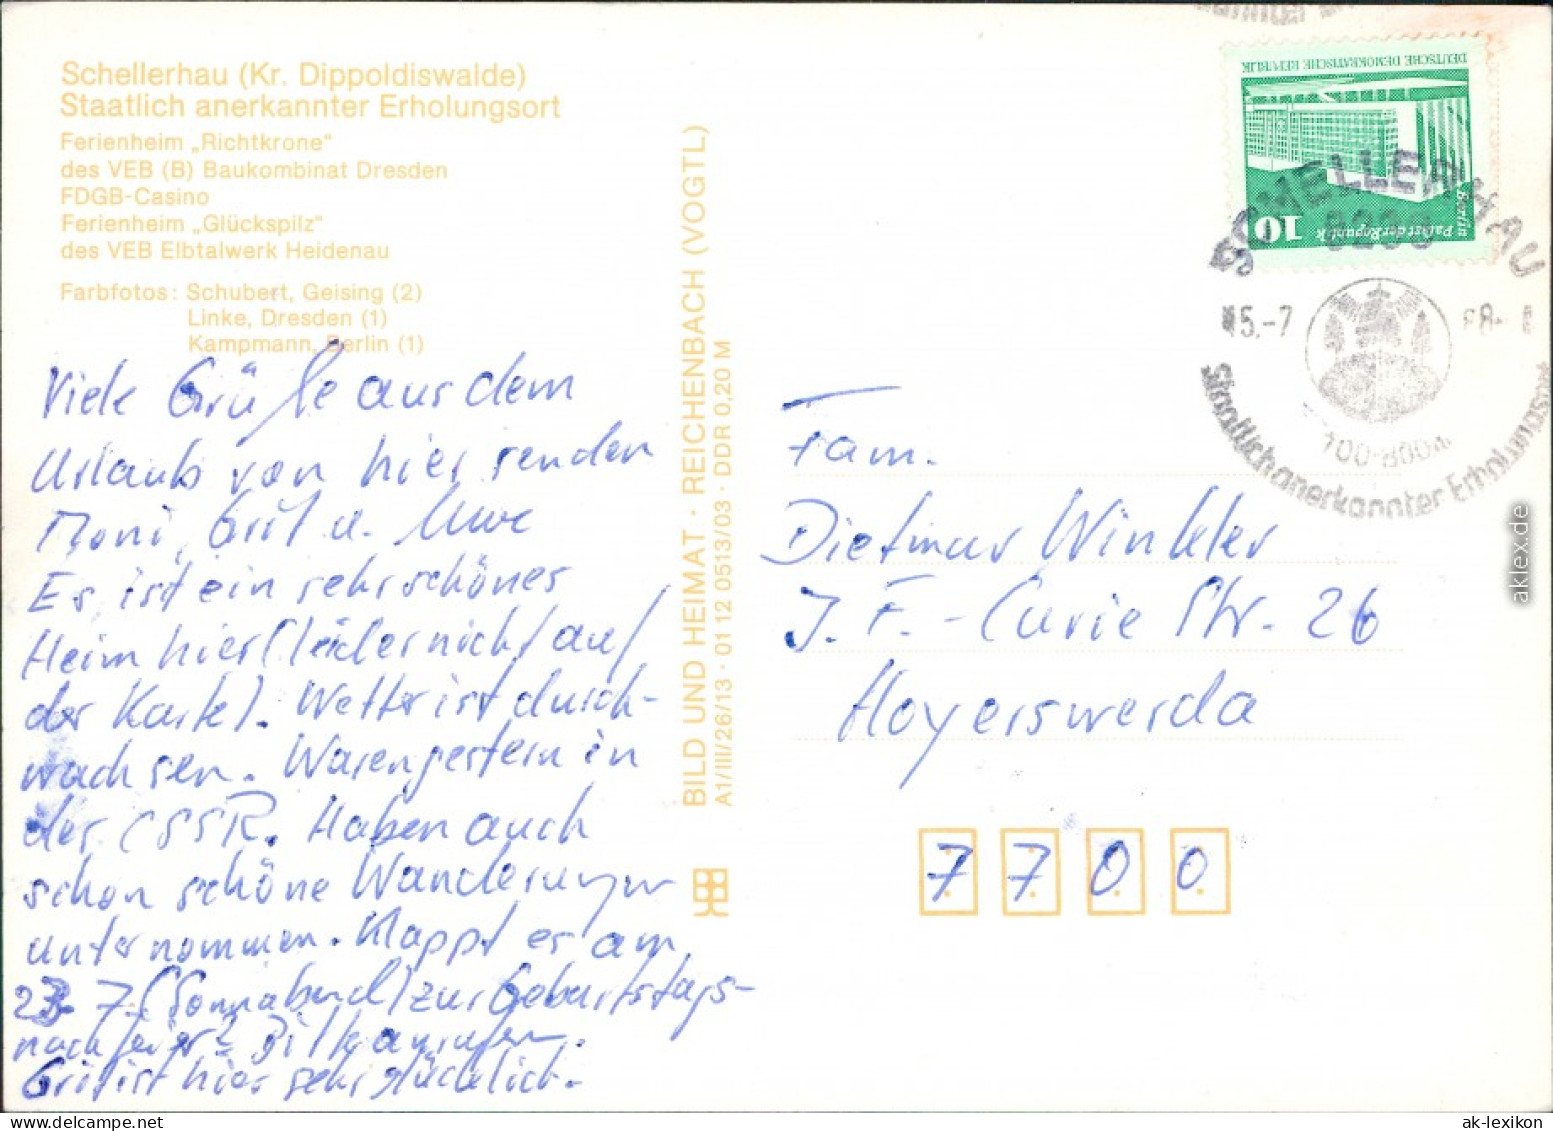 Schellerhau (Kr. Dippoldiswalde)
Staatlich anerkannter Erholungsort
Ferienheim „Richtkrone“
des VEB (B) Baukombinat Dresden
FDGB-Casino
Ferienheim „Glückspilz“
des VEB Elbtalwerk Heidenau
Farbfotos: Schubert, Geising (2)
Linke, Dresden (1)
Kampmann, Berlin (1)
Viele Grüße aus dem
Urlaub von hier senden
Moni, Grit u. Uwe
Es ist ein sehr schönes
Heim hier (leider nicht auf
der Karte). Wetter ist durch-
wachsen. Waren gestern in
der CSSR. Haben auch
schon schöne Wanderungen
unternommen. Klappt es am
23. 7. (Sonnabend) zur Geburtstags-
nachfeier? Bitte anrufen.
Grit ist hier sehr glücklich.
BILD UND HEIMAT · REICHENBACH (VOGTL)
A1/III/26/13 · 01 12 0513/03 · DDR 0,20 M
DEUTSCHE DEMOKRATISCHE REPUBLIK
10
Palast der Republik
Berlin
SCHELLERHAU
5.-7
88-
700-800m
Staatlich anerkannter Erholungsort
Fam.
Dietmar Winkler
J. F. - Curie Str. 26
Hoyerswerda
7 7 0 0
aklex.de
ak-lexikon